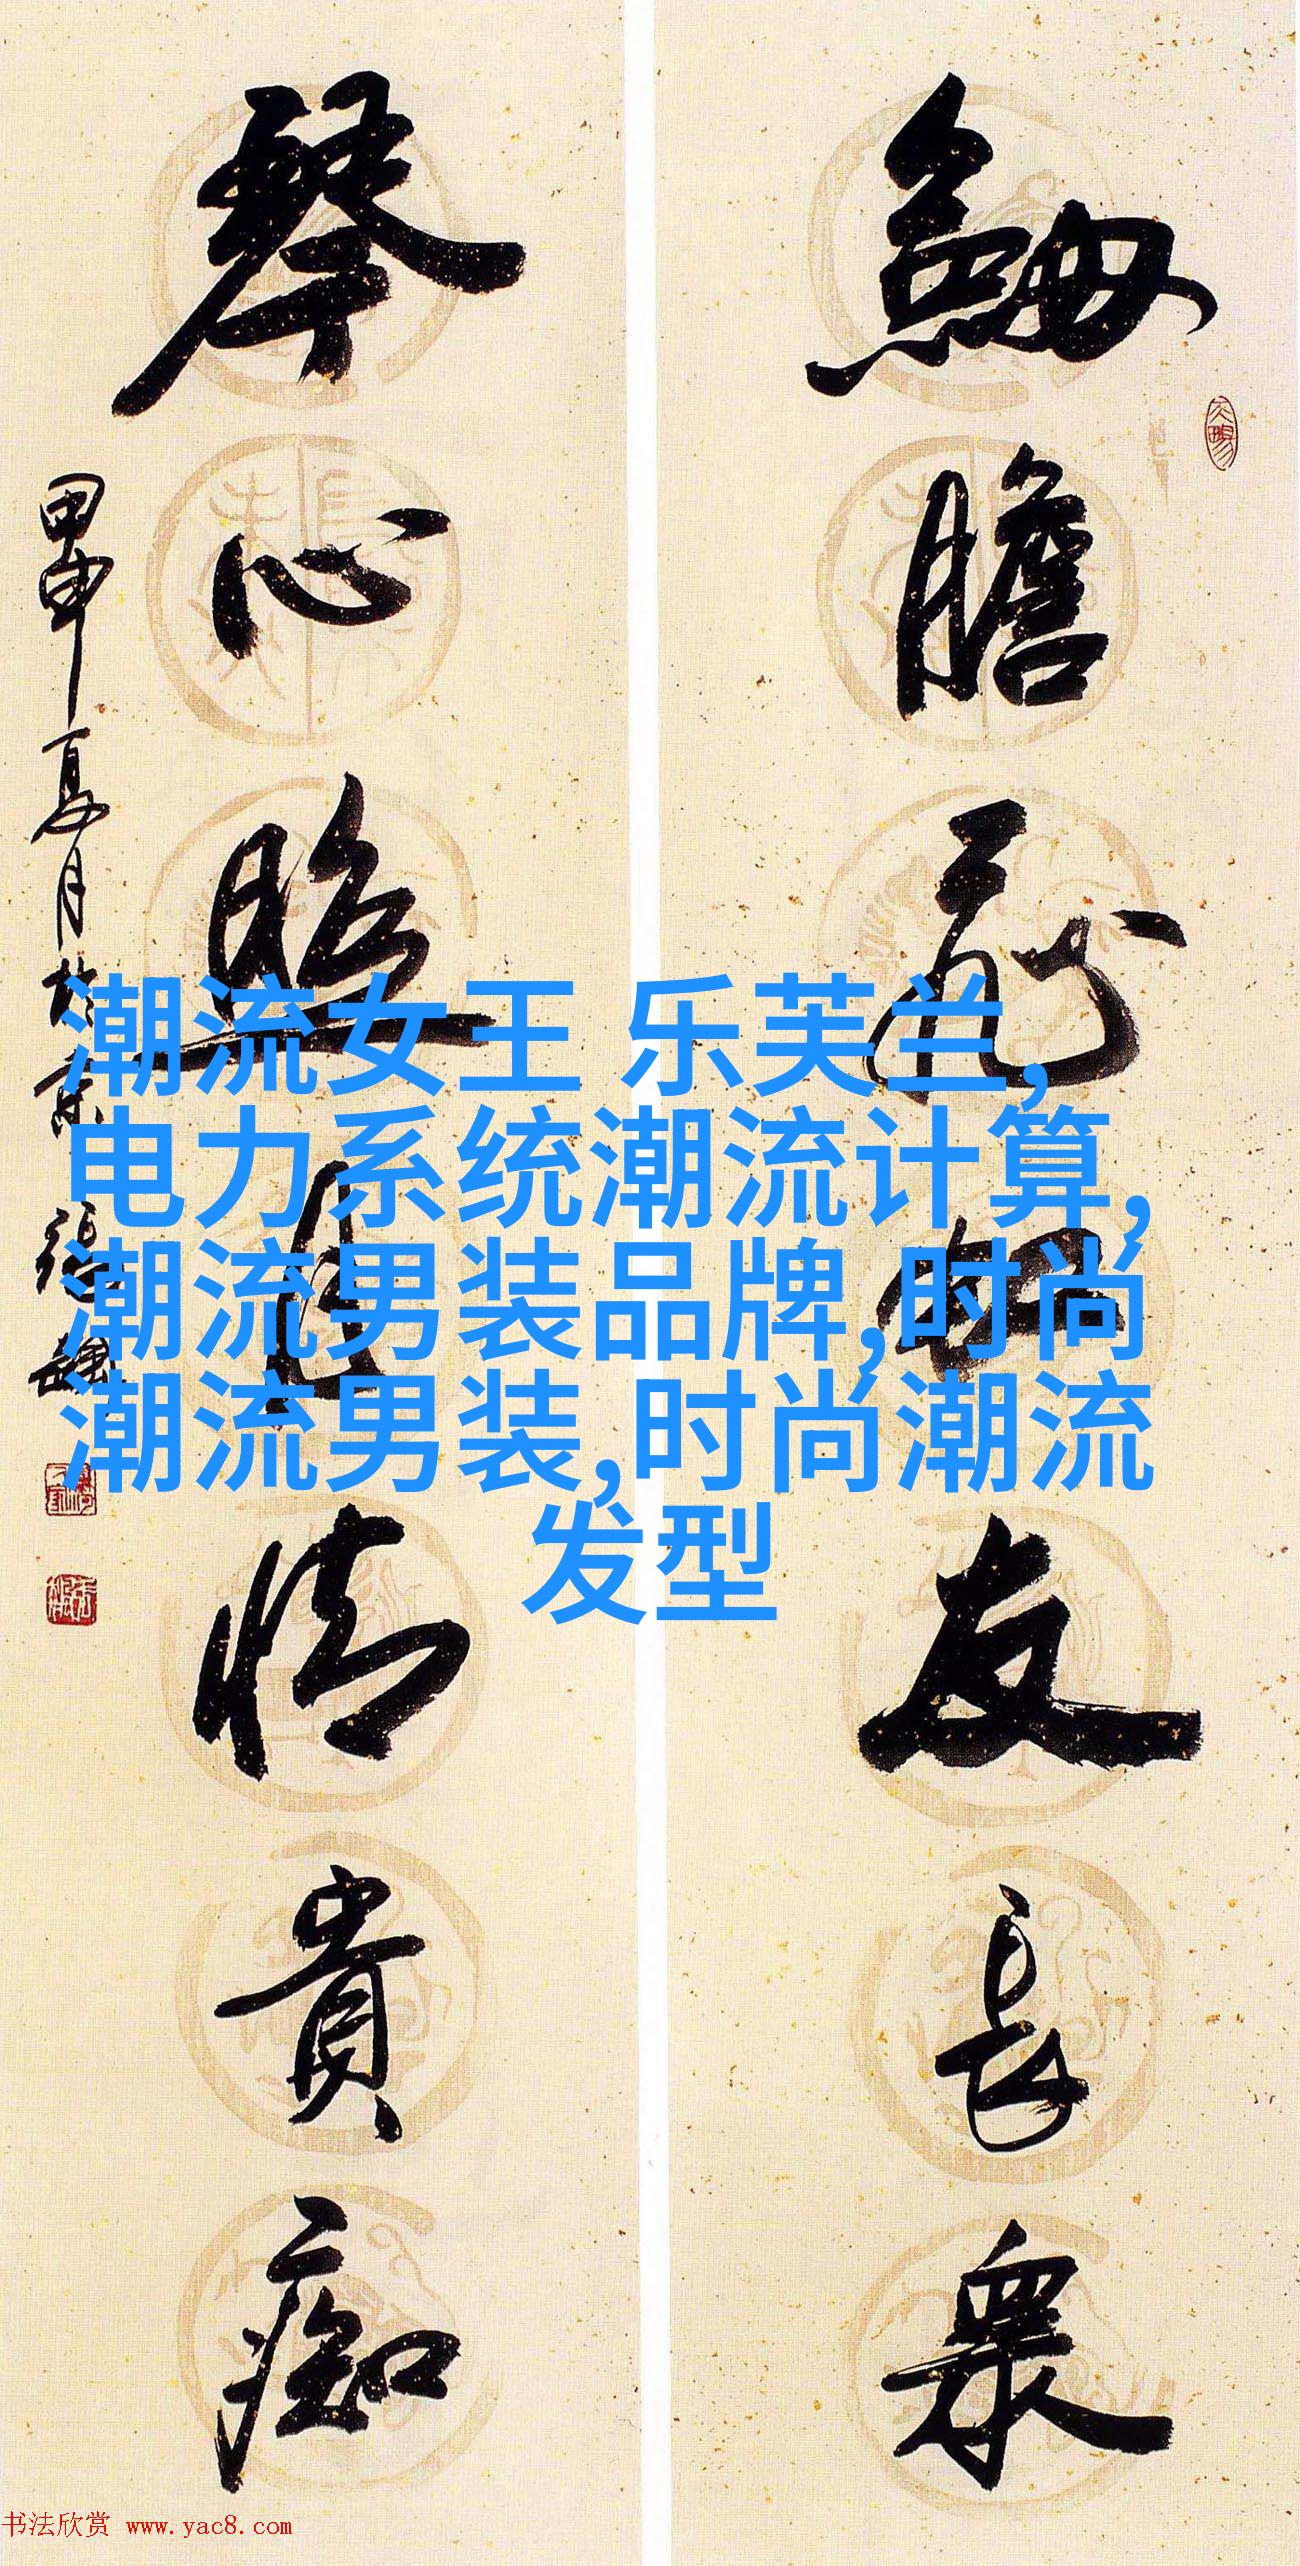 劍膽飛虹友長衆
琴心照月情貴痴
甲申夏月於京
潮流女王 乐芙兰,
电力系统潮流计算,
潮流男装品牌,时尚
潮流男装,时尚潮流
发型
书法欣赏 www.yac8.com